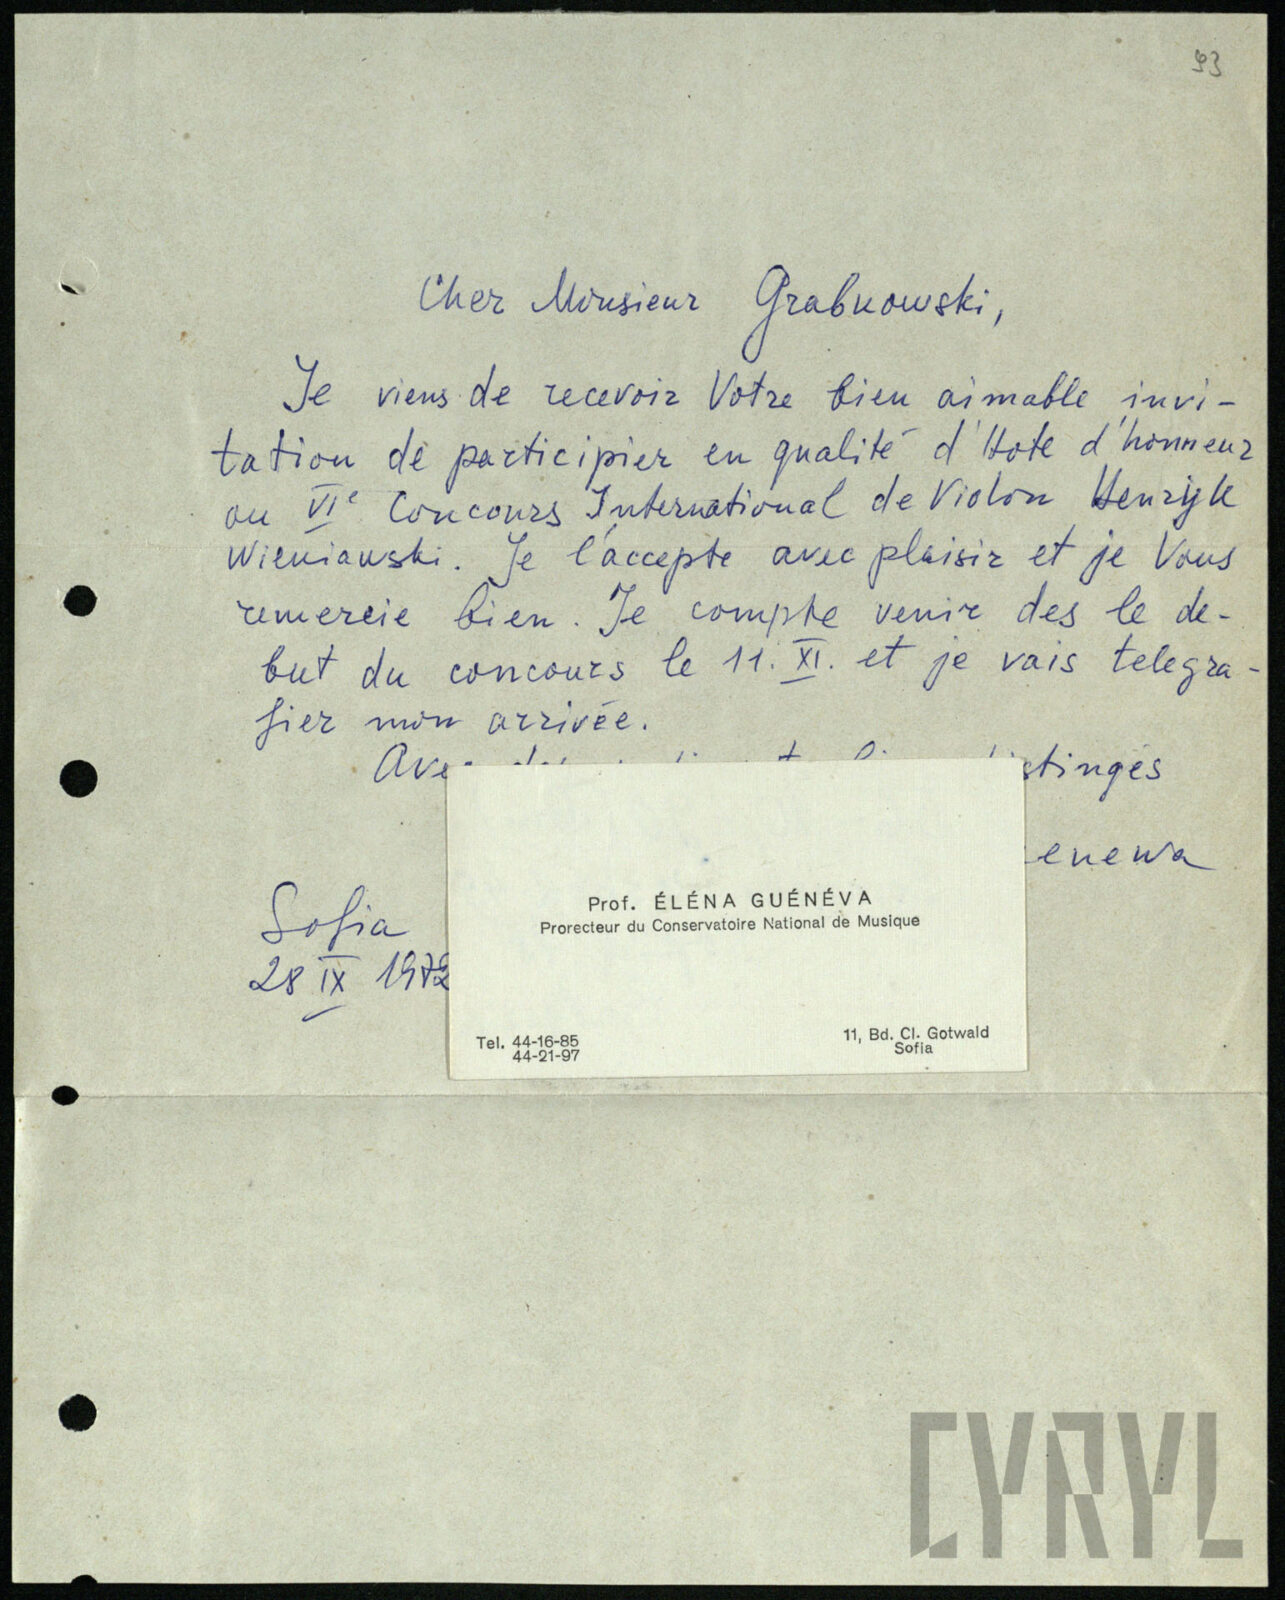 93
Cher Monsieur Grabkowski,
Je viens de recevoir Votre bien aimable invi-
tation de participier en qualité d'Hote d'honneur
au VIe Concours International de Violon Henryk
Wieniawski. Je l'accepte avec plaisir et je Vous
remercie bien. Je compte venir des le de-
but du concours le 11. XI. et je vais telegra-
fier mon arrivée.
Avec
Sofia
28 IX 1972
Prof. ÉLÉNA GUÉNÉVA
Prorecteur du Conservatoire National de Musique
Tel. 44-16-85
44-21-97
11, Bd. Cl. Gotwald
Sofia
CYRYL